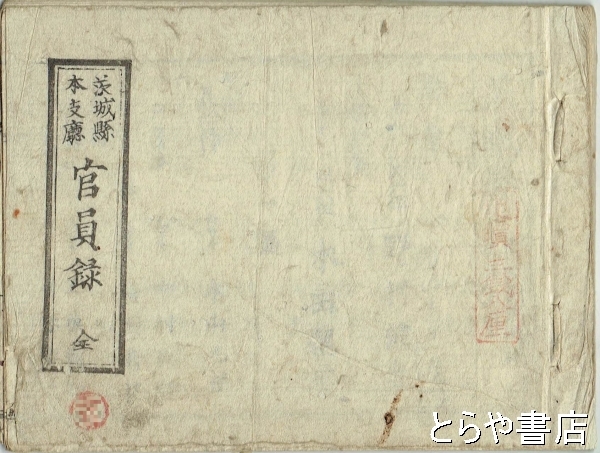 茨城縣
本支廳
官員録
全
とらや書店